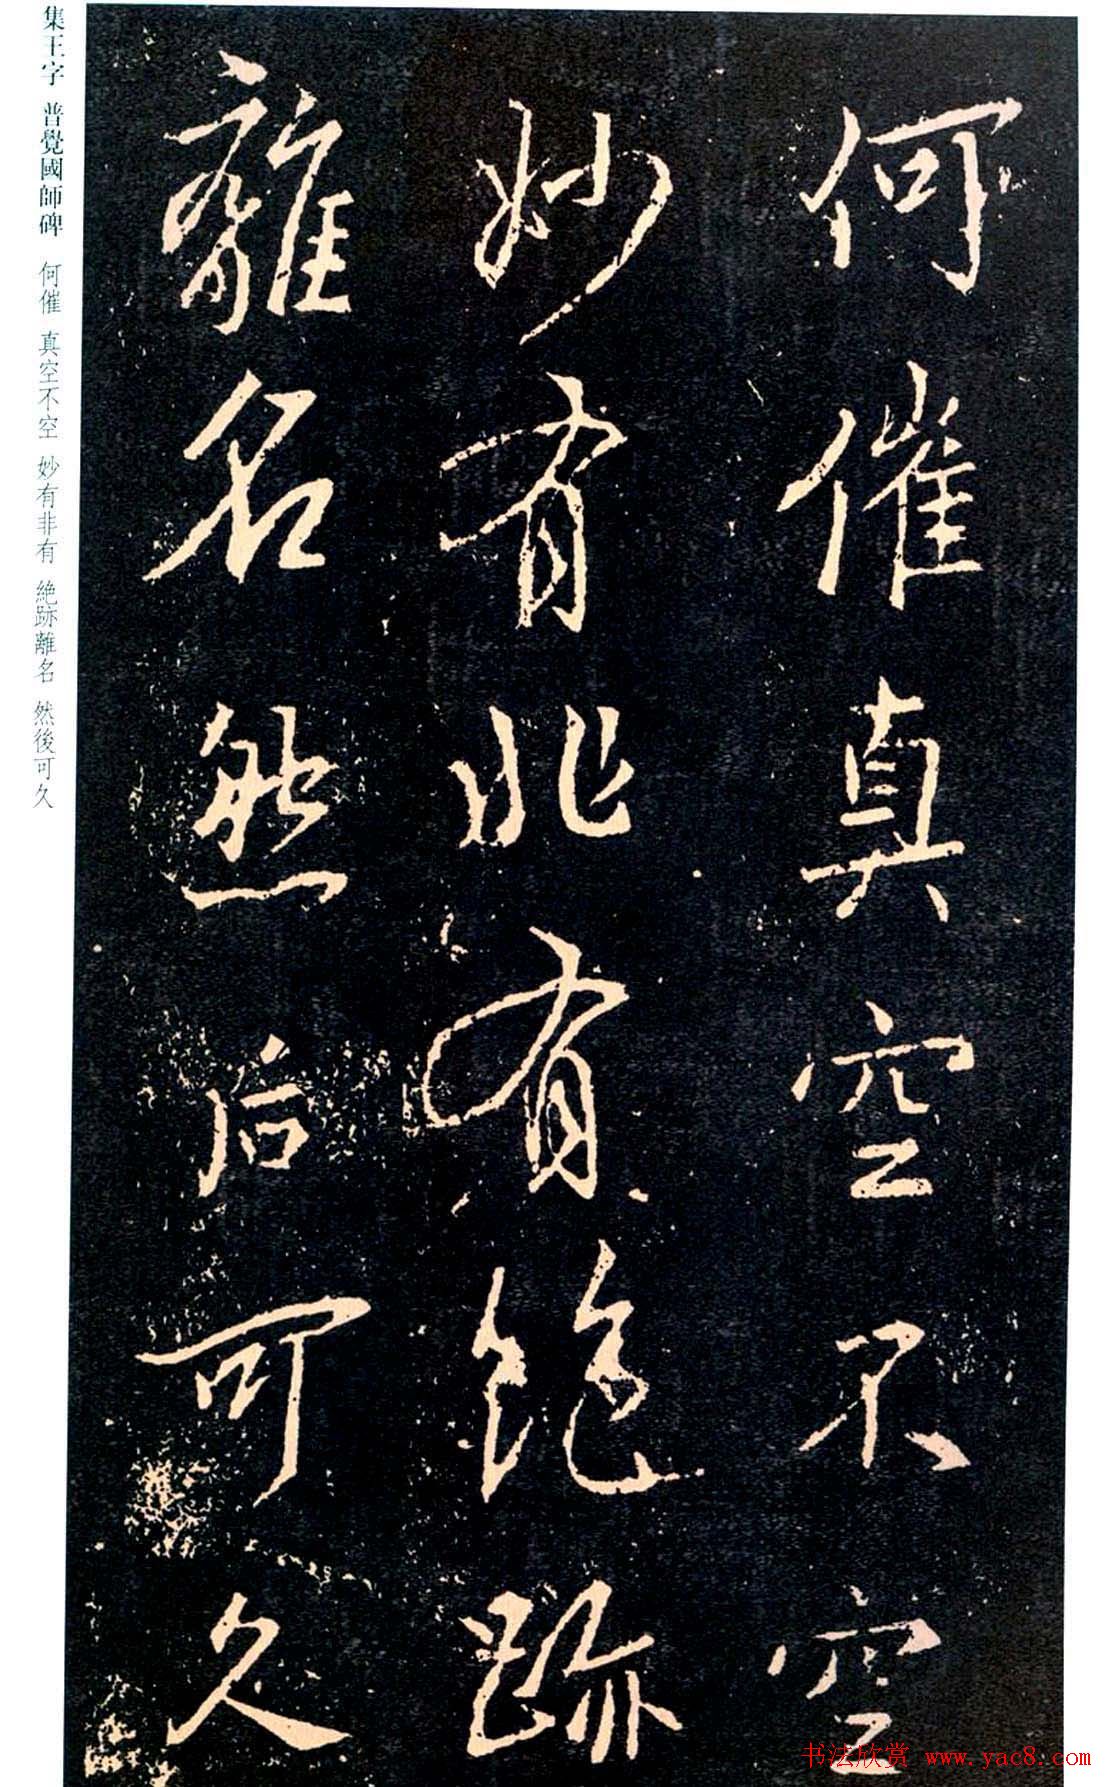 何催真空不空
妙有非有絶跡
離名然后可久
集王字 普覺國師碑 何催 真空不空 妙有非有 絶跡離名 然後可久
书法欣赏 www.yac8.com